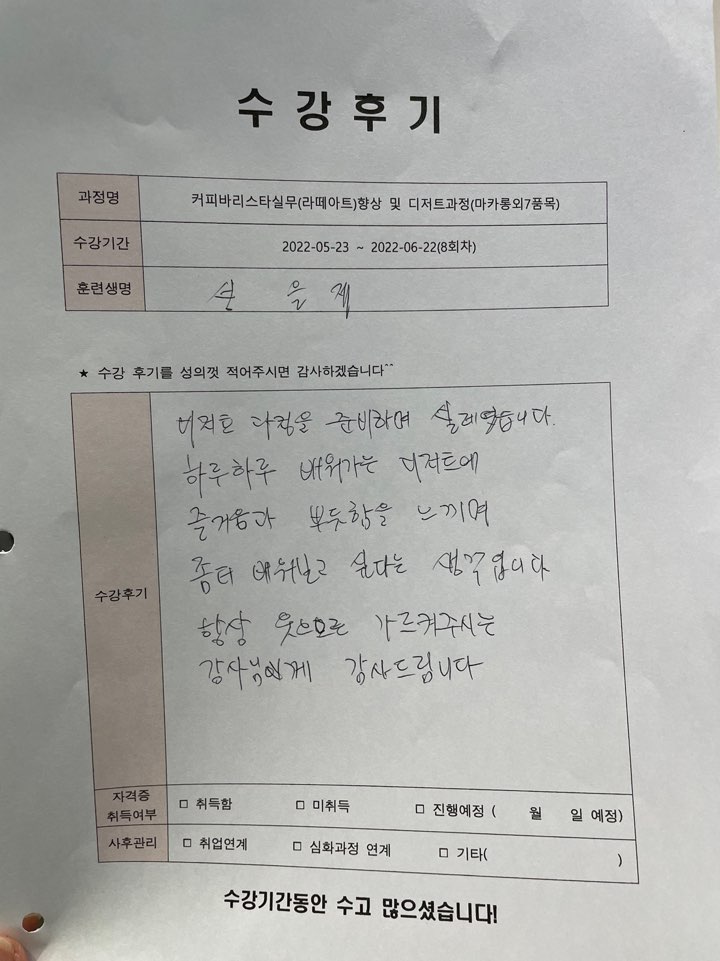 수강후기
과정명 커피바리스타실무(라떼아트)향상 및 디저트과정(마카롱외7품목)
수강기간 2022-05-23 ~ 2022-06-22(8회차)
훈련생명 을 제
★ 수강 후기를 성의껏 적어주시면 감사하겠습니다^^
디저트 과정을 준비하며 설레였습니다.
하루하루 배워가는 디저트에
즐거움과 뿌듯함을 느끼며
수강후기
좀더 배워보고 싶다는 생각입니다
항상 웃으므로 가르켜주시는
강사님에게 감사드립니다
자격증
취득여부 □ 취득함 □ 미취득 □ 진행예정 ( 월 일 예정)
사후관리 □ 취업연계 □ 심화과정 연계 □ 기타( )
수강기간동안 수고 많으셨습니다!